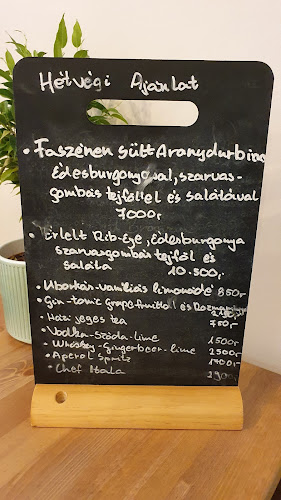 Hétvégi Ajánlat
• Faszénen sült Aranydurbincs
Édesburgonyával, szarvas-
gombás tejföllel és salátával
7000,-
• Érlelt Rib-Eye, Édesburgonya
szarvasgombás tejföl és
saláta 10.500,-
• Uborkás-vaníliás limonádé 850,-
• Gin-tonic Grapefruittal és Rozmaringgal
• Házi jeges tea 750,-
• Vodka-Szóda-lime 1500,-
• Whiskey-Gingerbeer-lime 2500,-
• Aperol Spritz
• Chef Itala